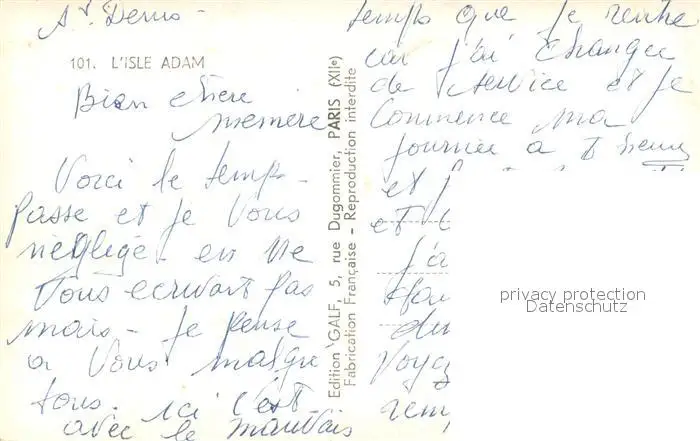 St Denis -
101. L'ISLE ADAM
Bien chère
memère
Voici le temps -
passe et je vous
néglige - en ne
vous ecrivant pas
mais - je pense
a vous malgre
tous. ici c'est
avec le mauvais
temps que je rentre
car j'ai changee
de service et je
Commence ma
journée a heures
et
et
j'a
du
voyag
Edition "GALF, 5, rue Dugommier, PARIS (XIIe)
Fabrication Française - Reproduction interdite
privacy protection
Datenschutz